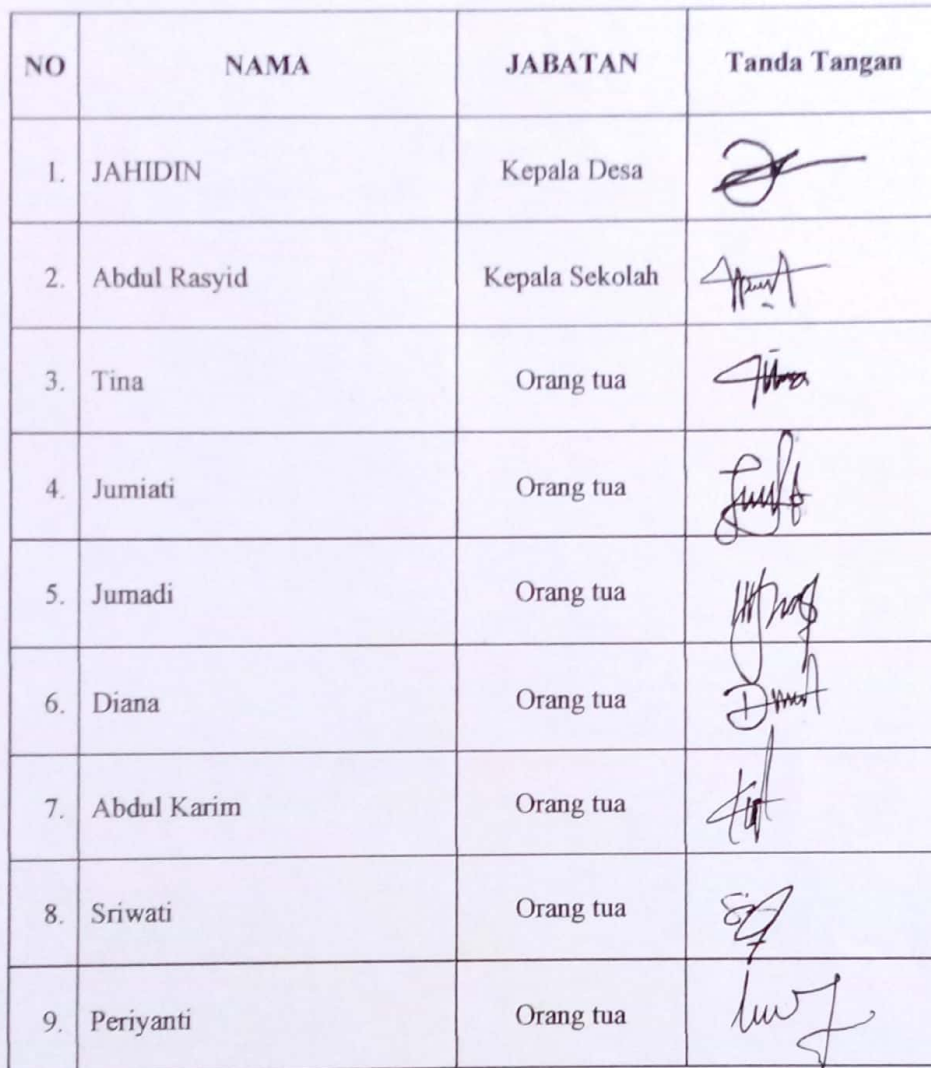 NO NAMA JABATAN Tanda Tangan
1. JAHIDIN Kepala Desa
2. Abdul Rasyid Kepala Sekolah
3. Tina Orang tua
4. Jumiati Orang tua
5. Jumadi Orang tua
6. Diana Orang tua
7. Abdul Karim Orang tua
8. Sriwati Orang tua
9. Periyanti Orang tua